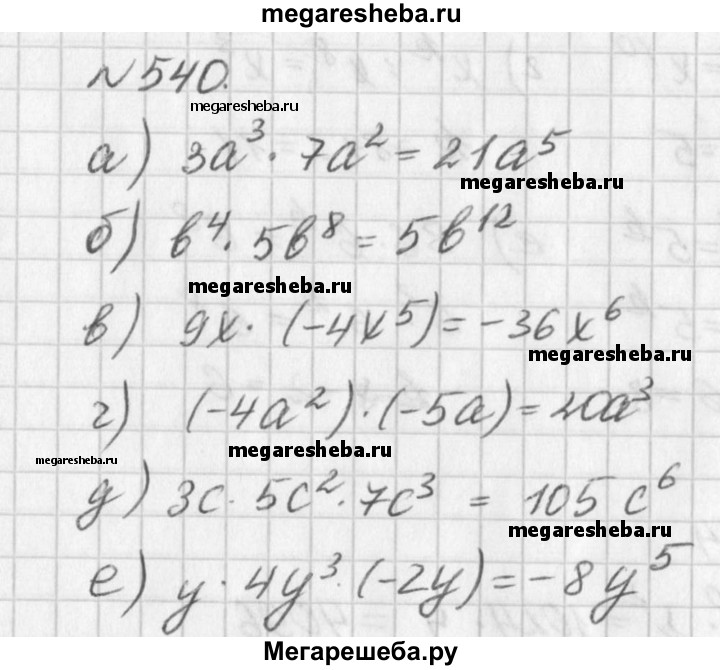 megaresheba.ru
№540.
megaresheba.ru
а) 3a³ · 7a² = 21a⁵
megaresheba.ru
б) b⁴ · 5b⁸ = 5b¹²
megaresheba.ru
в) 9x · (-4x⁵) = -36x⁶
megaresheba.ru
г) (-4a²) · (-5a) = 20a³
megaresheba.ru
megaresheba.ru
д) 3c · 5c² · 7c³ = 105c⁶
megaresheba.ru
е) y · 4y³ · (-2y) = -8y⁵
Мегарешеба.ру